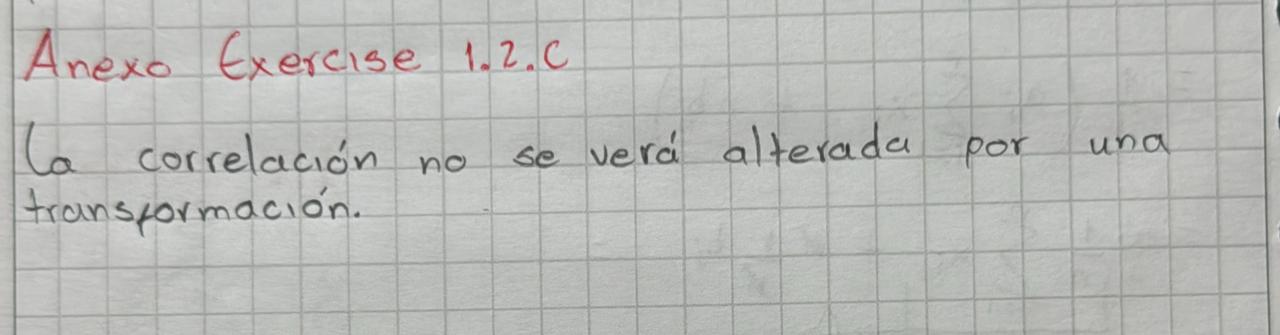 Anexo Exercise 1.2.C
La correlación no se verá alterada por una
transformación.